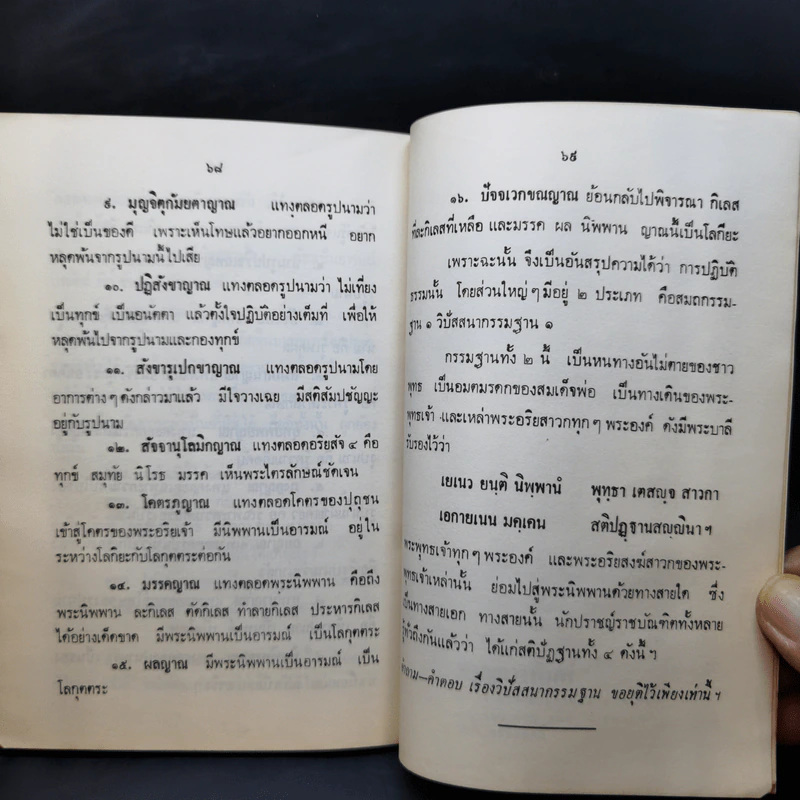 ๖๘
๙. มุญจิตุกัมยตาญาณ แทงตลอดรูปนามว่า
ไม่ใช่เป็นของดี เพราะเห็นโทษแล้วอยากออกหนี อยาก
หลุดพ้นจากรูปนามนี้ไปเสีย
๑๐. ปฏิสังขาญาณ แทงตลอดรูปนามว่า ไม่เที่ยง
เป็นทุกข์ เป็นอนัตตา แล้วตั้งใจปฏิบัติอย่างเต็มที่ เพื่อให้
หลุดพ้นไปจากรูปนามและกองทุกข์
๑๑. สังขารุเปกขาญาณ แทงตลอดรูปนามโดย
อาการต่างๆ ดังกล่าวมาแล้ว มีใจวางเฉย มีสติสัมปชัญญะ
อยู่กับรูปนาม
๑๒. สัจจานุโลมิกญาณ แทงตลอดอริยสัจ ๔ คือ
ทุกข์ สมุทัย นิโรธ มรรค เห็นพระไตรลักษณ์ชัดเจน
๑๓. โคตรภูญาณ แทงตลอดโคตรของปุถุชน
เข้าสู่โคตรของพระอริยเจ้า มีนิพพานเป็นอารมณ์ อยู่ใน
ระหว่างโลกิยะกับโลกุตตระต่อกัน
๑๔. มรรคญาณ แทงตลอดพระนิพพาน คือถึง
พระนิพพาน ละกิเลส ตัดกิเลส ทำลายกิเลส ประหารกิเลส
ได้อย่างเด็ดขาด มีพระนิพพานเป็นอารมณ์ เป็นโลกุตตระ
๑๕. ผลญาณ มีพระนิพพานเป็นอารมณ์ เป็น
โลกุตตระ
๖๙
๑๖. ปัจจเวกขณญาณ ย้อนกลับไปพิจารณา กิเลส
ที่ละกิเลสที่เหลือ และมรรค ผล นิพพาน ญาณนี้เป็นโลกิยะ
เพราะฉะนั้น จึงเป็นอันสรุปความได้ว่า การปฏิบัติ
ธรรมนั้น โดยส่วนใหญ่ๆ มีอยู่ ๒ ประเภท คือสมถกรรม-
ฐาน ๑ วิปัสสนากรรมฐาน ๑
กรรมฐานทั้ง ๒ นี้ เป็นหนทางอันไม่ตายของชาว
พุทธ เป็นอมตมรดกของสมเด็จพ่อ เป็นทางเดินของพระ-
พุทธเจ้า และเหล่าพระอริยสาวกทุกๆ พระองค์ ดังมีพระบาลี
รับรองไว้ว่า
เยเนว ยนฺติ นิพฺพานํ พุทฺธา เตสญฺจ สาวกา
เอกายเนน มคฺเคน สติปฏฺฐานสญฺญินาฯ
พระพุทธเจ้าทุกๆ พระองค์ และพระอริยสงฆ์สาวกของพระ-
พุทธเจ้าเหล่านั้น ย่อมไปสู่พระนิพพานด้วยทางสายใด ซึ่ง
เป็นทางสายเอก ทางสายนั้น นักปราชญ์ราชบัณฑิตทั้งหลาย
รู้ทั่วถึงกันแล้วว่า ได้แก่สติปัฏฐานทั้ง ๔ ดังนี้ฯ
คำถาม—คำตอบ เรื่องวิปัสสนากรรมฐาน ขอยุติไว้เพียงเท่านี้ฯ